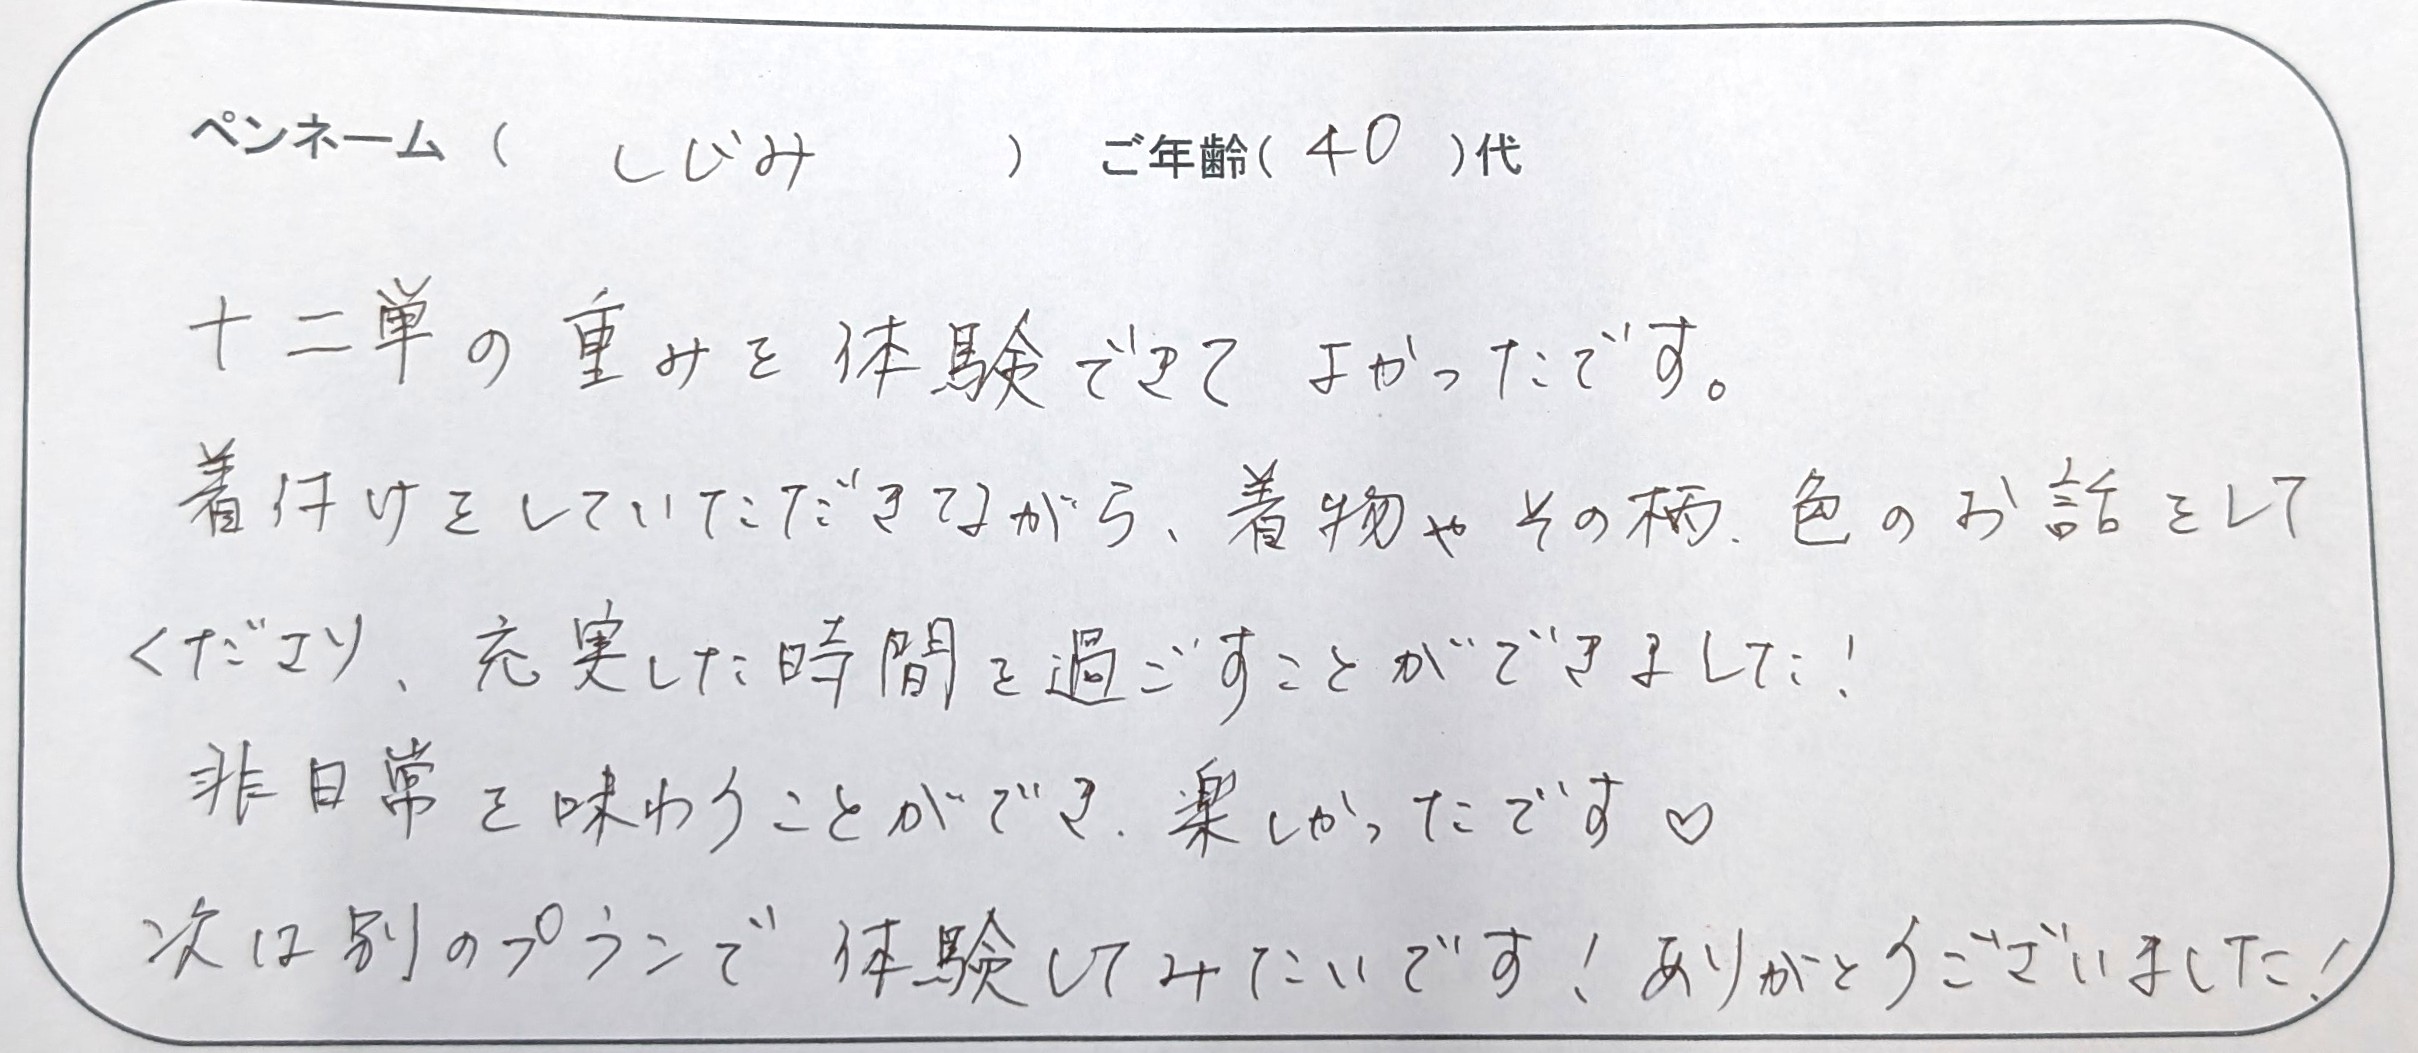 ペンネーム ( しじみ ) ご年齢( 40 )代
十二単の重みを体験できてよかったです。
着付けをしていただきながら、着物やその柄、色のお話をして
くださり、充実した時間を過ごすことができました!
非日常を味わうことができ、楽しかったです♡
次は別のプランで体験してみたいです!ありがとうございました!